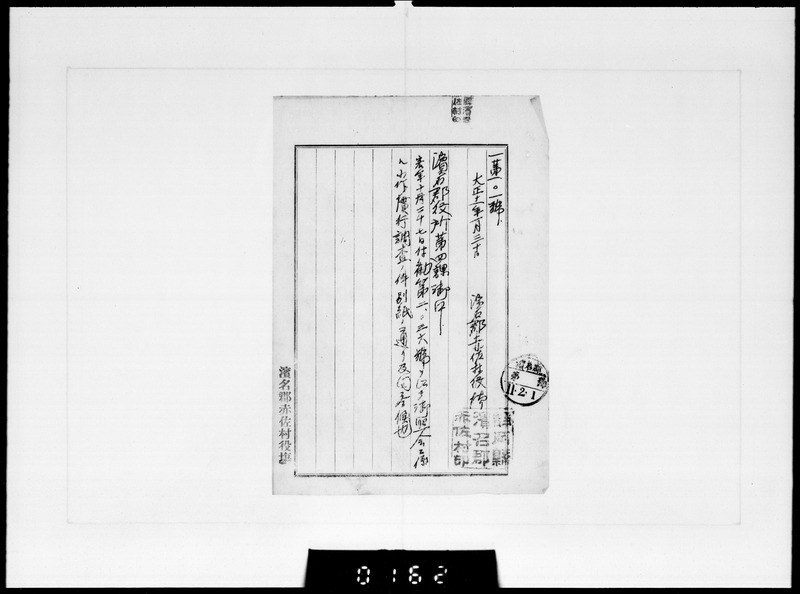 第一〇一號
大正十一年一月三十日
濱名郡赤佐村役場
濱名郡役所第四課御中
客年十月二十七日付勸第二、三六號ヲ以テ御照會ニ係
ル小作慣行調査ノ件別紙ノ通リ及回答候也
静岡縣
濱名郡
赤佐村印
11.2.1
濱名郡赤佐村役場
0162